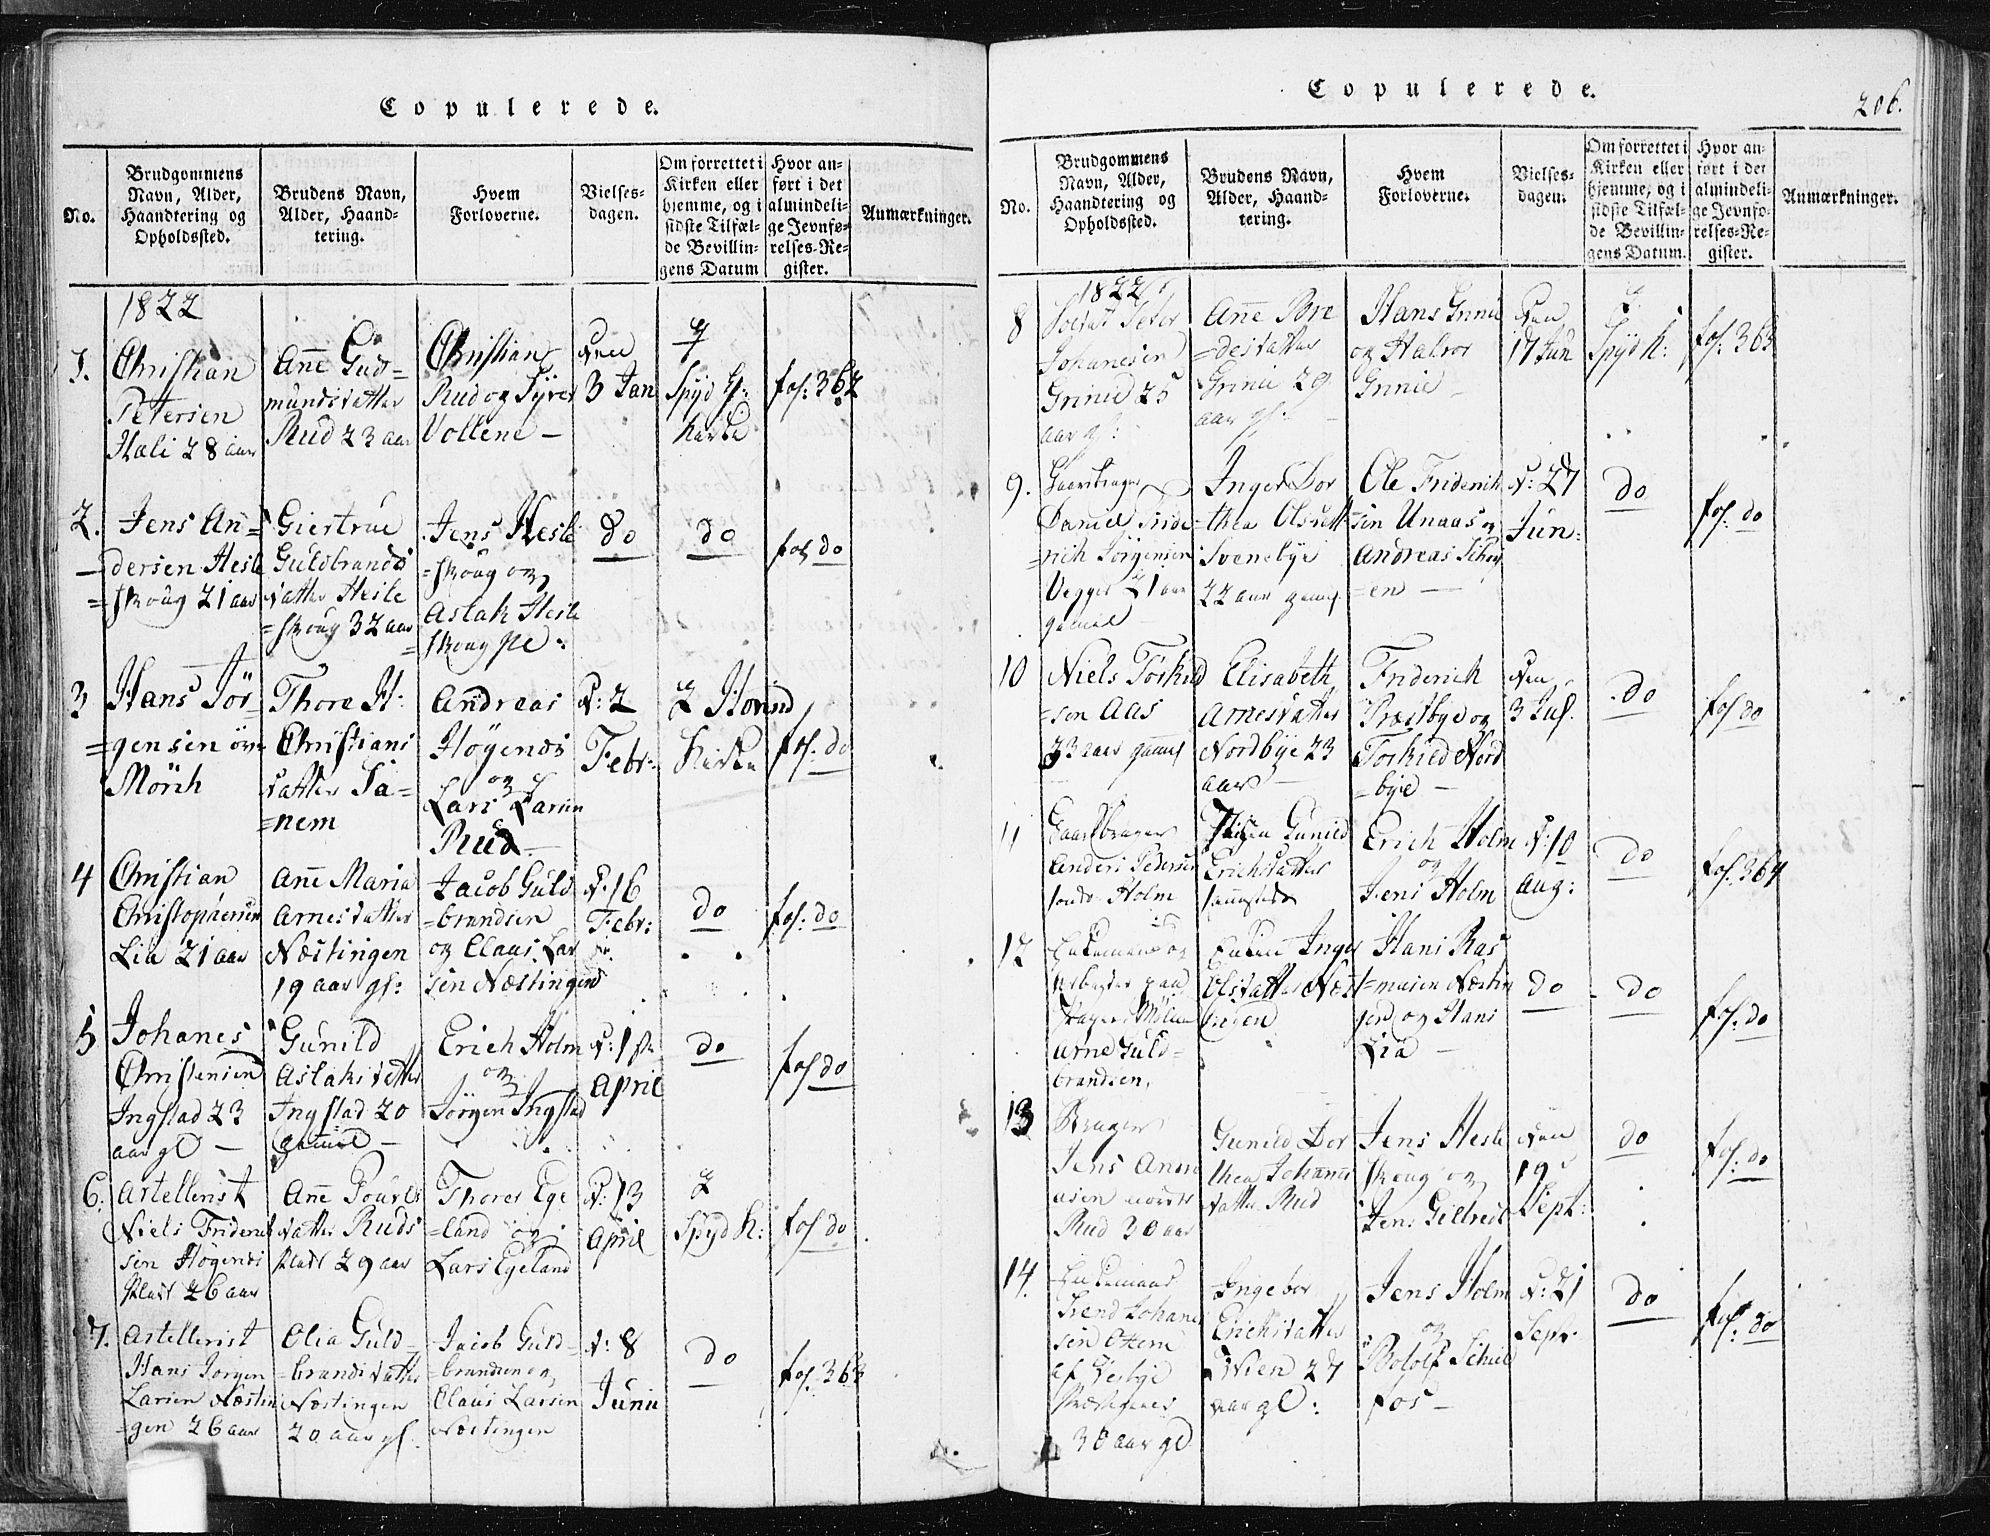 Copulerede.
No.
Brudgommens Navn, Alder, Haandtering og Opholdssted.
Brudens Navn, Alder, Haandtering.
Hvem Forloverne.
Vielses-dagen.
Om forrettet i Kirken eller hjemme, og i sidste Tilfælde Bevillingens Datum
Hvor anført i det almindelige Jevnførelses-Register.
Anmærkninger.
1822
1.
Christian
Petersen
Hali 28 aar
Anne Gud=
mundsdatter
Rud 23 aar
Christian
Rud og Syver
Vollene –
den
3 Jan
Spyd
Kirke
fol. 362
2.
Jens An=
dersen Hesle
=skoug 21 aar
Giertrue
Guldbrands
datter Hesle
=skoug 32 aar
Jens Hesle
=skoug og
Aslak Hesle
skoug
do
do
fol do
3
Hans Jör
=gensen
Mörch
Thore H:
Christians
datter Sa=
=nem
Andreas
Höyends
og
Lars Larsen
Rud
d: 2
Febr:
I Hovind
Kirke
fol. do
4
Christian
Christophersen
Lia 21 aar
Anne Maria
Arnesdatter
Næstingen
19 aar gl:
Jacob Guld
=brandsen
og Claus Lar
sen Næstingen
d. 16
Febr:
do
fol. do
5
Johanes
Christensen
Ingstad 23
aar gl –
Gunild
Aslaksdatter
Ingstad 20
gamel –
Erich Holm
og
Jörgen Ingstad
d: 1ste
April
do
fol do
6.
Artellerist
Niels Friderich
sen Högends
Plads 26 aar
Anne Pouels
datter Ruds
Plads 29 aar
Thorer Ege
=land og
Lars Egeland
d: 13
April
I
Spyd K:
fol do
7.
Artellerist
Hans Jörgen
Larsen Næstin
=gen 26 aar
Olia Guld=
=brandsdatter
Næstingen
20 aar gl.
Jacob Guld=
=brandsen og
Claus Larsen
Næstingen
d: 8
Junii
do
fol. 363
Copulerede.
206.
No.
Brudgommens Navn, Alder, Haandtering og Opholdssted.
Brudens Navn, Alder, Haandtering.
Hvem Forloverne.
Vielses-dagen.
Om forrettet i Kirken eller hjemme, og i sidste Tilfælde Bevillingens Datum.
Hvor anført i det almindelige Jevnførelses-Register.
Anmærkninger.
1822
8
Soldat Peter
Johanesen
Grinie 25
aar gl:
Anne
=desdatter
Grinie 29
aar gl. –
Hans Grinie
og Halvor
Grinie –
den
17 Jun
I
Spyd K:
fol. 363
9.
Gaardbruger
Daniel Fride
=rich Jörgensen
Vegger 21 aar
gamel –
Inger Dor
=thea Olsdatt
Svenebye
22 aar gamel
Ole Friderich
=sen Unaas og
Andreas
=en –
d: 27
Jun:
do
fol. do
10
Niels Torkild
=sen Aas
23 aar gamel
Elisabeth
Arnesdatter
Nordbye 23
aar –
Friderich
Præstbye og
Torkild Nord
=bye –
den
3 Jul.
do
fol do
11
Gaardbruger
Anders Pedersen
Holm
Gunild
Erichsdatter
Erich Holm
og
Jens Holm
d: 10
Aug:
do
fol. 364
12
Enkemand og
arbeyder paa
Arne Guld=
brandsen,
Inger
Olsdatter Næst
Hans Ras
=musen Næstin
og Hans
Lia –
do
do
fol. do
13
Bruger
Jens Andre
asen
Rud 30 aar
Gunild Dor
thea Johannes
datter Rud
Jens Hesle
skoug og
Jens
den
19
Sept:
do
fol: do
14.
Enkemand
Svend Johane
sen
af
Præstegield
30 aar gl
Ingebor
Erichsdatter
27
aar gl:
Jens Holm
og
fos –
d: 21
Sept.
do
fol. do